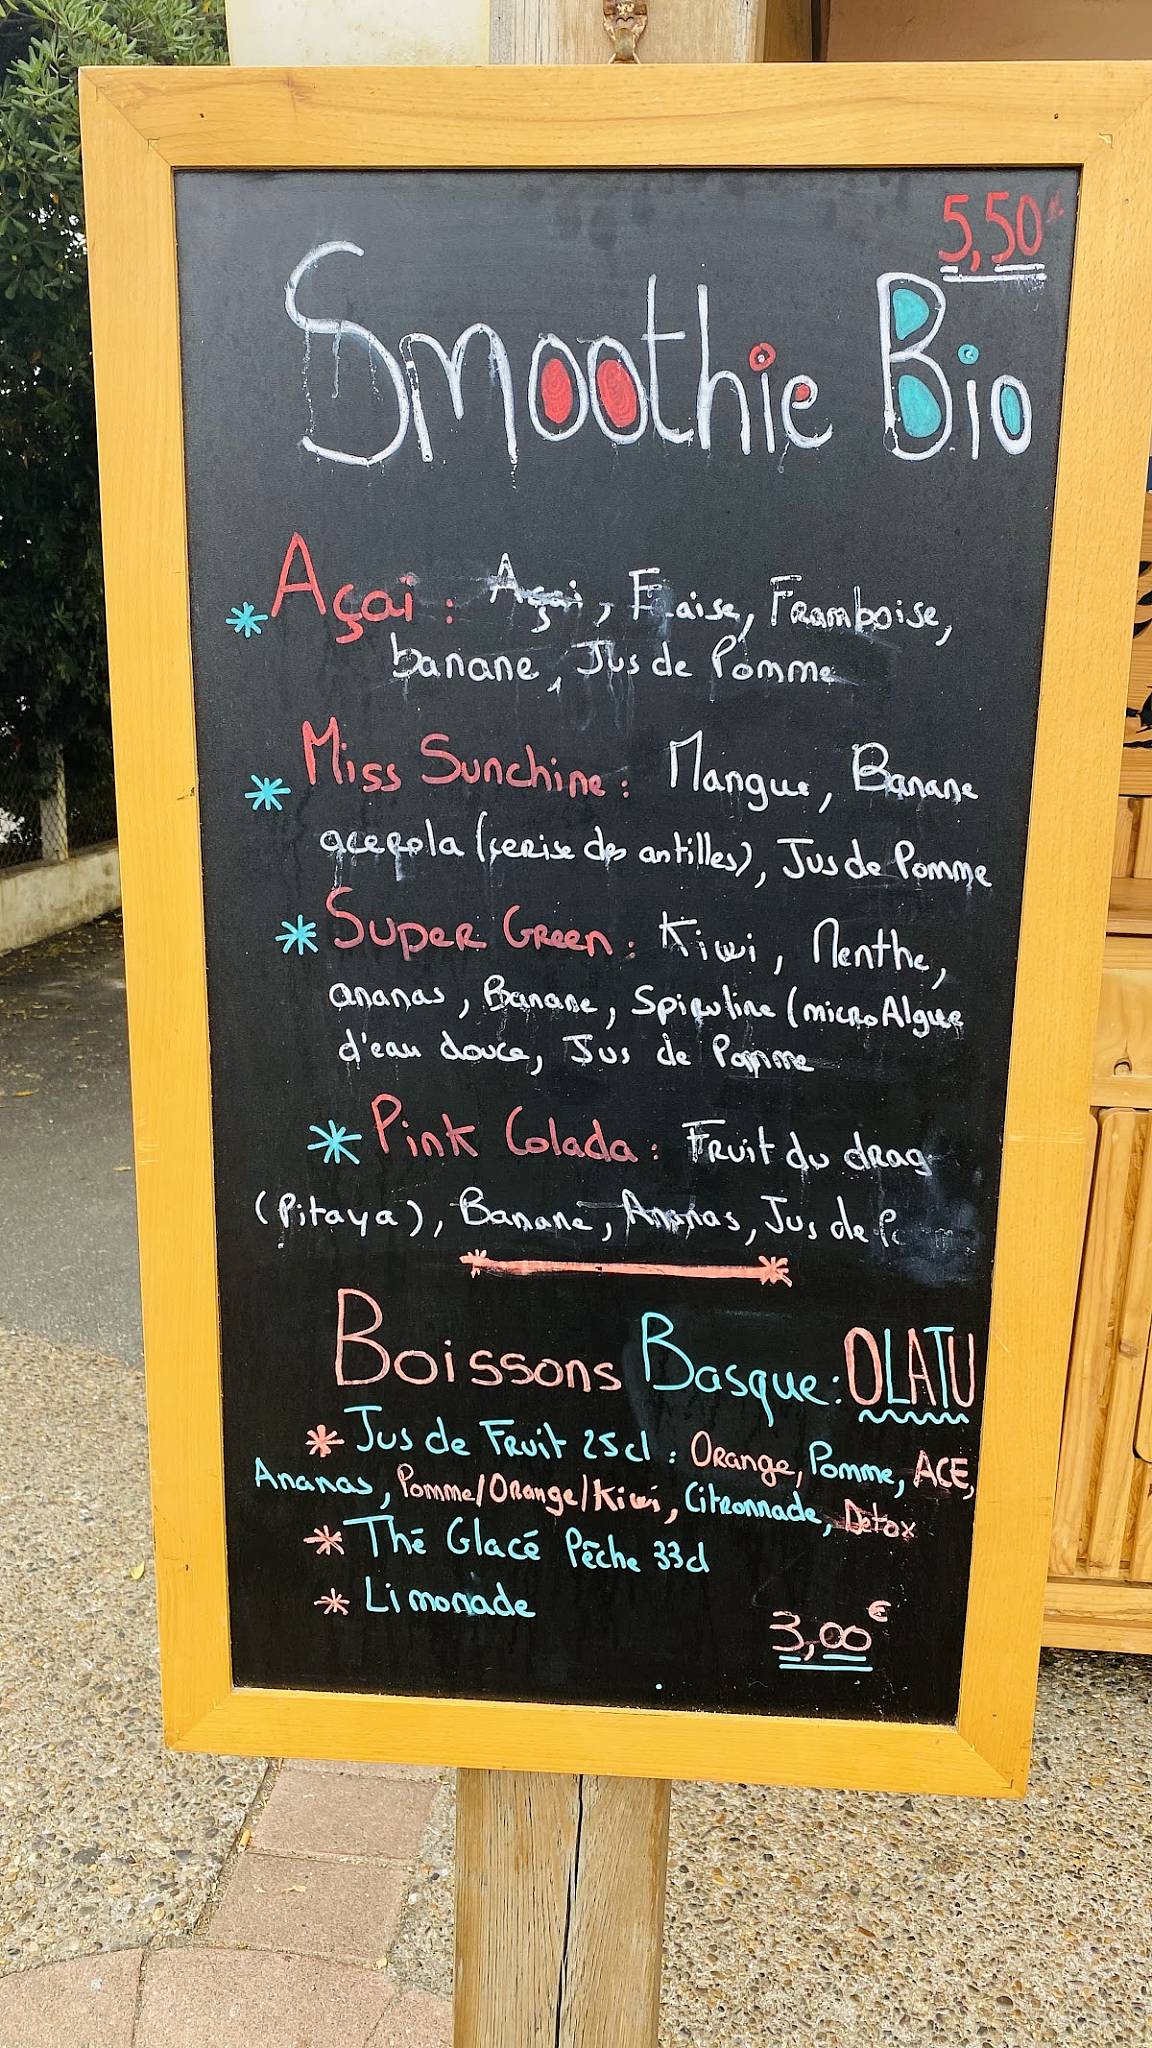 5,50€
Smoothie Bio
* Açaï : Açaï, Fraise, Framboise,
banane, Jus de Pomme
* Miss Sunchine : Mangue, Banane
acerola (cerise des antilles), Jus de Pomme
* Super Green : Kiwi, Menthe,
ananas, Banane, Spiruline (micro Algue
d'eau douce, Jus de Pomme
* Pink Colada : Fruit du drag
(Pitaya), Banane, Ananas, Jus de P
Boissons Basque : OLATU
* Jus de Fruit 25cl : Orange, Pomme, ACE,
Ananas, Pomme/Orange/Kiwi, Citronnade, Detox
* Thé Glacé Pêche 33cl
* Limonade
3,00€